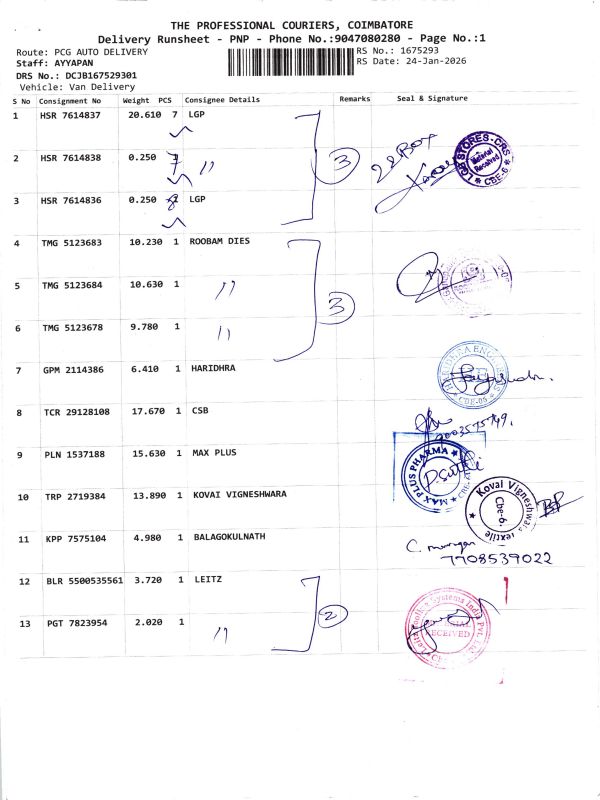 THE PROFESSIONAL COURIERS, COIMBATORE
Delivery Runsheet - PNP - Phone No.:9047080280 - Page No.:1
Route: PCG AUTO DELIVERY
RS No.: 1675293
Staff: AYYAPAN
RS Date: 24-Jan-2026
DRS No.: DCJB167529301
Vehicle: Van Delivery
S No Consignment No Weight PCS Consignee Details Remarks Seal & Signature
1 HSR 7614837 20.610 7 LGP
2 HSR 7614838 0.250 7 〃 3 22 BOX
LGB STORES-CRS Material Received CBE-6
3 HSR 7614836 0.250 8 LGP
4 TMG 5123683 10.230 1 ROOBAM DIES
5 TMG 5123684 10.630 1 〃 3
6 TMG 5123678 9.780 1 〃
7 GPM 2114386 6.410 1 HARIDHRA
CBE-05
8 TCR 29128108 17.670 1 CSB
9 PLN 1537188 15.630 1 MAX PLUS
MAX PLUS PHARMA
10 TRP 2719384 13.890 1 KOVAI VIGNESHWARA
Kovai Vigneshwara Textile Cbe-6.
11 KPP 7575104 4.980 1 BALAGOKULNATH C. murugan
7708539022
12 BLR 5500535561 3.720 1 LEITZ
2
13 PGT 7823954 2.020 1 〃
Leitz Tooling Systems India Pvt. Ltd. RECEIVED